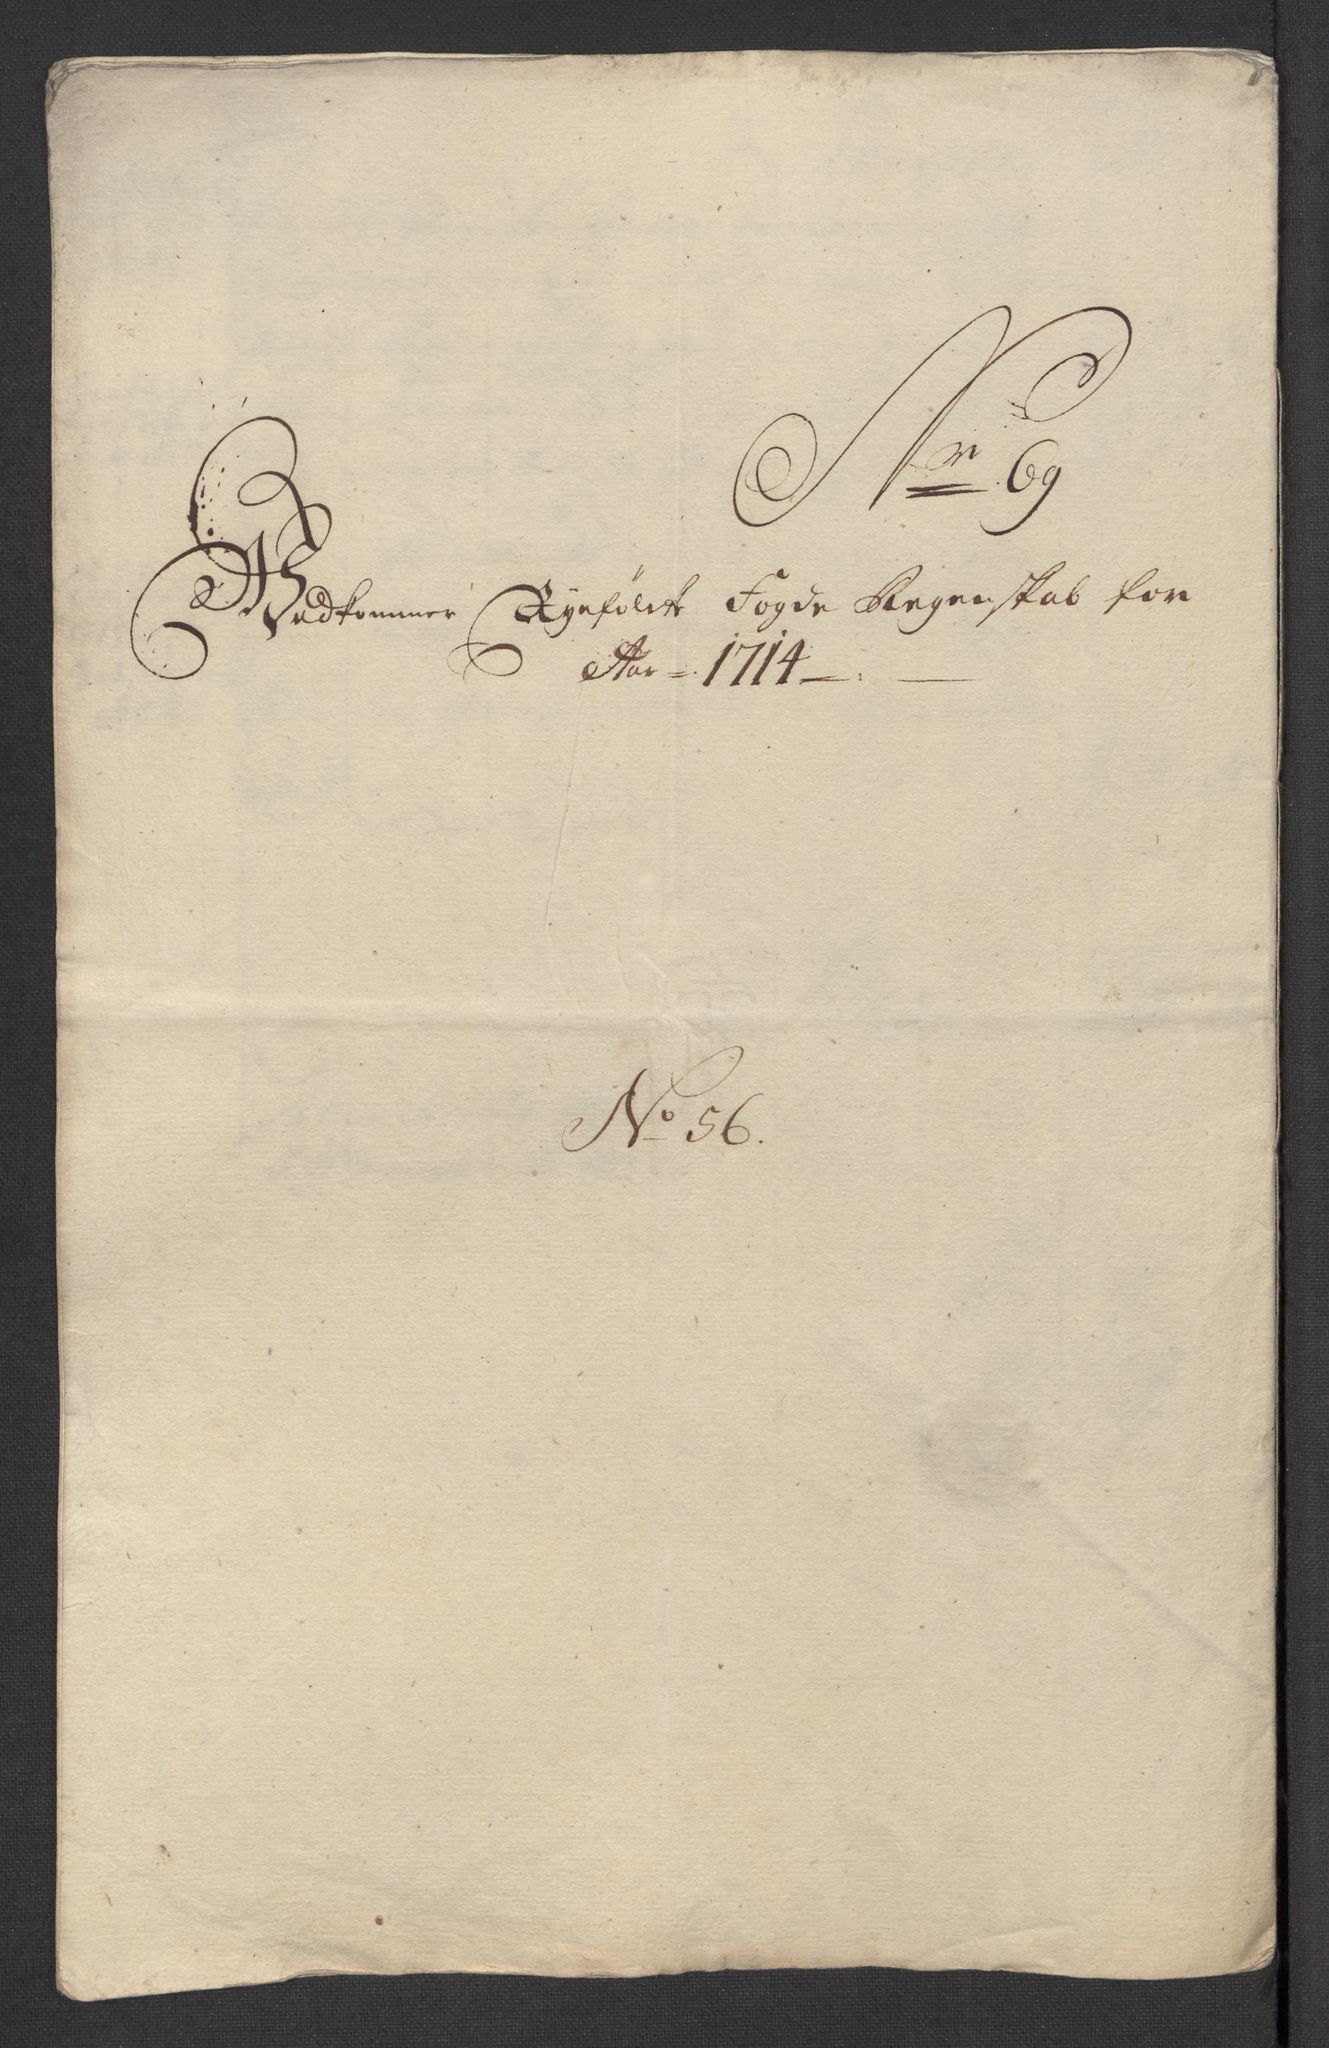 Nr 69
Vedkommer Ryefölck Fogde Regenskab for
Aar 1714
No 56.